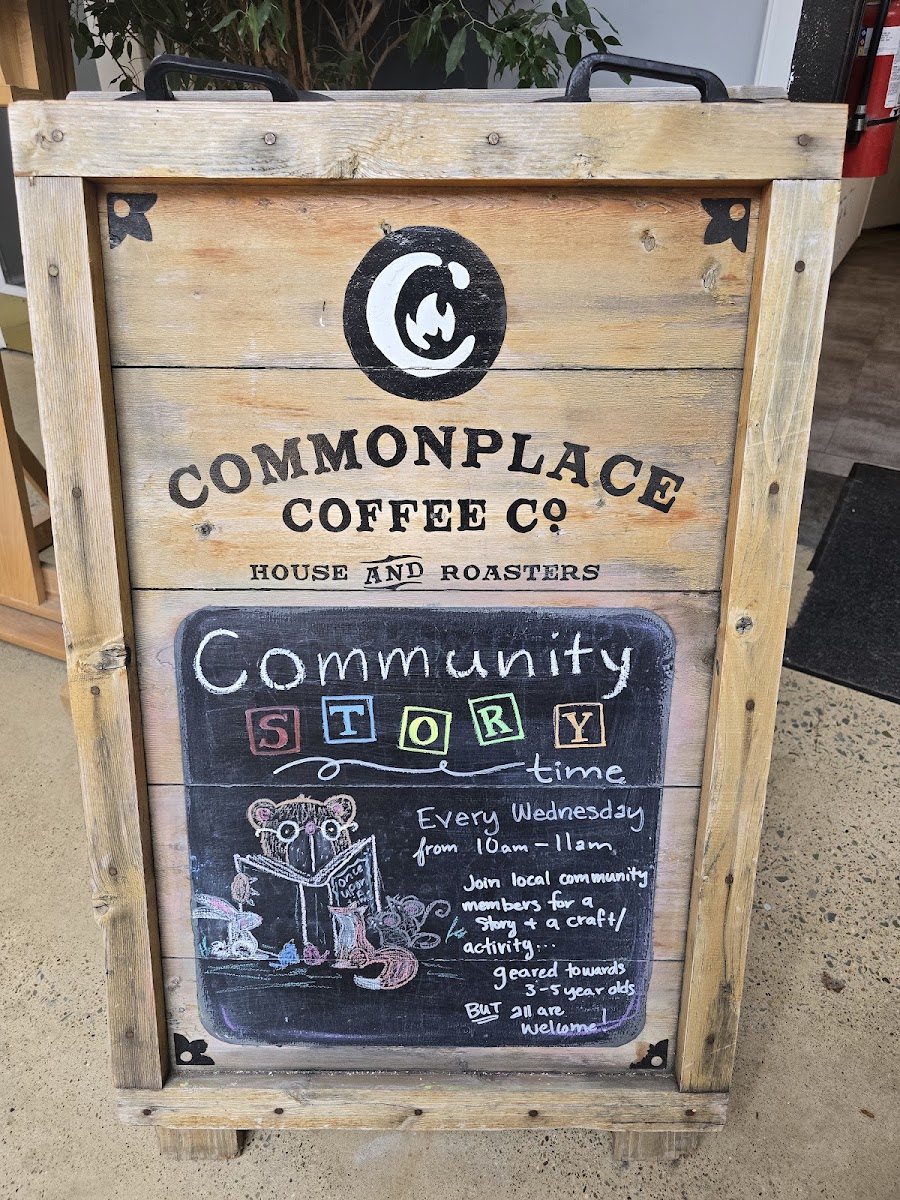 COMMONPLACE
COFFEE CO
HOUSE AND ROASTERS
Community
STORY
time
Every Wednesday
from 10am - 11am
Join local community
members for a
story + a craft/
activity...
geared towards
3-5 year olds
BUT all are
welcome!
once
upon